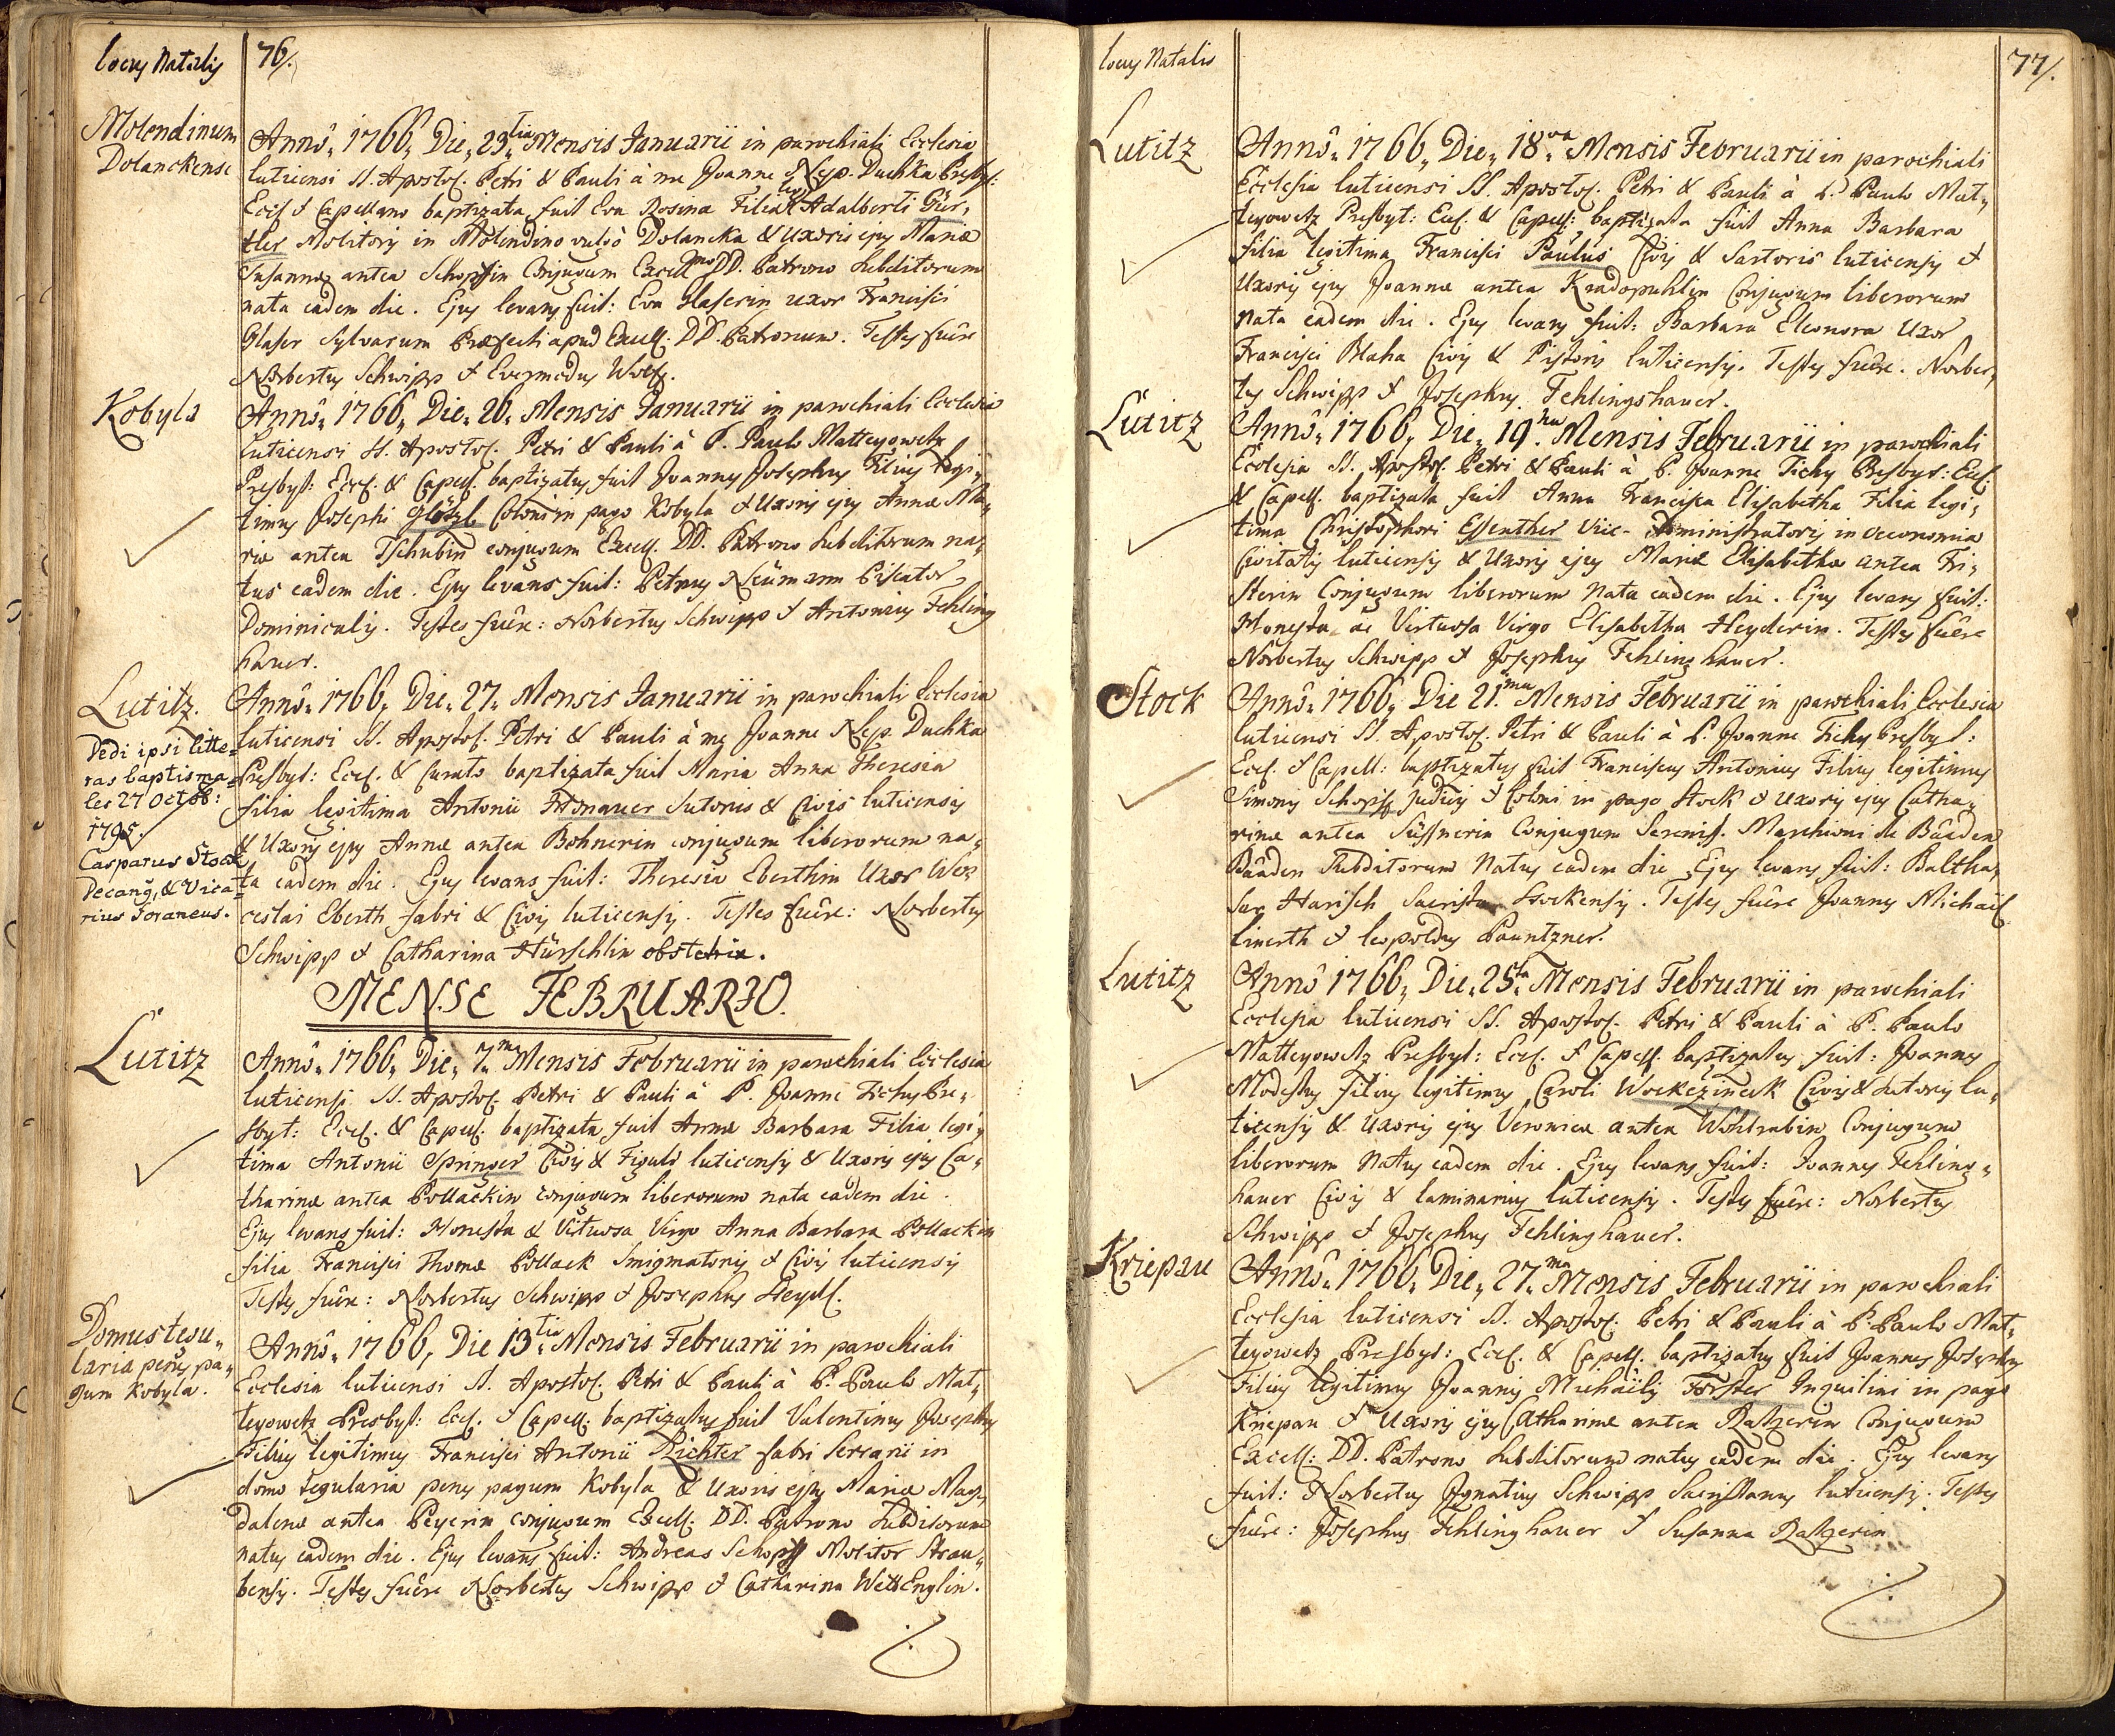 locus Natalis
76/.
Molendinum
Dolanckense
Annô„ 1766„ Die„ 23„tia Mensis Januarii in parochiali Ecclesia
luticensi SS. Apostol. Petri & Pauli à me Joanne Nep. Duchka Presbyt:
Eccl. & Capellano baptizata fuit Eva Rosina Filia leg: Adalberti Gür„
tler Molitoris in Molendino vulgò Dolancka & Uxoris ejus Mariæ
Susannæ antea Schopffin Conjugum Excellmo DD. Patrono Subditorum
nata eadem die. Ejus levans fuit: Eva Glaserin uxor Francisci
Glaser Sylvarum Præfecti apud Excell. DD. Patronum. Testes fuêre
Norbertus Schwipp & Evermodus Wolf.
Kobyla
Annô„ 1766„ Die„ 26„ Mensis Januarii in parochiali Ecclesia
luticensi SS. Apostol. Petri & Pauli à P. Paulo Matteyowetz
Presbyt: Eccl. & Capell. baptizatus fuit Joannes Josephus Filius legi„
timus Josephi Glötzl Coloni in pago Kobyla & Uxoris ejus Annæ Ma„
riæ antea Tschubin conjugum Excell. DD. Patrono Subditorum na„
tus eadem die. Ejus levans fuit: Petrus Neümann Piscator
Dominicalis. Testes fuêre: Norbertus Schwipp & Antonius Fehling
hauer.
Lutitz.
Dedi ipsi litte=
ras baptisma=
les 27 Octob:
1795.
Casparus Stock
Decang, & Vica=
rius Foraneus.
Annô„ 1766„ Die„ 27„ Mensis Januarii in parochiali Ecclesia
luticensi SS. Apostol. Petri & Pauli à me Joanne Nep. Duchka
Presbyt: Eccl. & Curato baptizata fuit Maria Anna Theresia
filia legitima Antonii Sutoris & Civis luticensis
& Uxoris ejus Annæ antea Bohnerin conjugum liberorum na„
ta eadem die. Ejus levans fuit: Theresia Eberthin Uxor Wen
ceslai Eberth fabri & Civis luticensis. Testes fuêre: Norbertus
Schwipp & Catharina Hürschlin obstetrix.
MENSE FEBRUARIO.
Lutitz
Annô„ 1766„ Die„ 7„ma Mensis Februarii in parochiali Ecclesia
luticensi SS. Apostol. Petri & Pauli à P. Joanne Tichy Pre„
sbyt: Eccl. & Capell. baptizata fuit Anna Barbara Filia legi„
tima Antonii Springer Civis & Figuli luticensis & Uxoris ejus Ca„
tharinæ antea Pollackin conjugum liberorum nata eadem die.
Ejus levans fuit: Honesta & Vituosa Virgo Anna Barbara Pollackin
filia Francisci Thomæ Pollack Smigmatoris & Civis luticensis
Testes fuêre: Norbertus Schwipp & Josephus Heydl.
Domus tegu„
laria penes pa„
gum Kobyla.
Annô„ 1766, Die 13„tia Mensis Februarii in parochiali
Ecclesia luticensi SS. Apostol. Petri & Pauli à P. Paulo Mat„
teyowetz Presbyt: Eccl. & Capell: baptizatus fuit Valentinus Josephus
Filius legitimus Francisci Antonii Richter fabri Serrarii in
domo tegularia penes pagum Kobyla & Uxoris ejus Mariæ Mag„
dalenæ antea Peyerin conjugum Excell: DD. Patrono Subditorum
natus eadem die. Ejus levans fuit: Andreas Schopff Molitor Strau„
bensis. Testes fuêre Norbertus Schwipp & Catharina WettEnglin.
locus Natalis
77/.
Lutitz
Annô„ 1766„ Die„ 18„va Mensis Februarii in parochiali
Ecclesia luticensi SS. Apostol. Petri & Pauli à P. Paulo Mat„
teyowetz Presbyt: Eccl. & Capell: baptizata fuit Anna Barbara
filia legitima Francisci Paulus Civis & Sartoris luticensis &
Uxoris ejus Joannæ antea Kradopuhlin Conjugum liberorum
nata eadem die. Ejus levans fuit: Barbara Eleonora Uxor
Francisci Blaha Civis & Pistoris luticensis. Testes fuêre. Norber„
tus Schwipp & Josephus Fehlingshauer.
Lutitz
Annô„ 1766„ Die„ 19„na Mensis Februarii in parochiali
Ecclesia SS. Apostol. Petri & Pauli à P. Joanne Tichy Presbyt: Eccl.
& Capell. baptizata fuit Anna Francisca Elisabetha Filia legi„
tima Christophori Essenther Vice-Administratoris in oeconomia
Civitatis luticensis & Uxoris ejus Mariæ Elisabethæ antea Fri„
sterin Conjugum liberorum nata eadem die. Ejus levans fuit:
Honesta ac Virtuosa Virgo Elisabetha Heyderin. Testes fuêre
Norbertus Schwipp & Josephus Fehlinghauer.
Stock
Annô„ 1766„ Die 21„ma Mensis Februarii in parochiali Ecclesia
luticensi SS. Apostol. Petri & Pauli à P. Joanne Tichy Presbyt:
Eccl. & Capell: baptizatus fuit Franciscus Antonius Filius legitimus
Simonis Schopff Judicis & Coloni in pago Stock & Uxoris ejus Catha„
rinæ antea Süssnerin Conjugum Sereniss. Marchioni de Baaden
Baaden Subditorum Natus eadem die Ejus levans fuit: Baltha„
sar Harisch Sacrista Stockensis. Testes fuêre Joannes Michaël
Linerth & Leopoldus Pauntzner.
Lutitz
Annô 1766„ Die„ 25„ta Mensis Februarii in parochiali
Ecclesia luticensi SS. Apostol. Petri & Pauli à P. Paulo
Matteyowetz Presbyt: Eccl. & Capell. baptizatus fuit: Joannes
Modestus Filius legitimus Caroli Wockczineck Civis & Sutoris lu„
ticensis & Uxoris ejus Veronicæ antea Wohlrabin Conjugum
liberorum natus eadem die. Ejus levans fuit: Joannes Fehling„
hauer Civis & laminarius luticensis. Testes fuêre: Norbertus
Schwipp & Josephus Fehlinghauer.
Kriepau
Annô„ 1766„ Die„ 27„ma Mensis Februarii in parochiali
Ecclesia luticensi SS. Apostol. Petri & Pauli à P. Paulo Mat„
teyowetz Presbyt: Eccl. & Capell. baptizatus fuit Joannes Josephus
Filius legitimus Joannis Michaëlis Förster Inquilini in pago
Kriepau & Uxoris ejus Catharinæ antea Ratzerin Conjugum
Excell: DD. Patrono Subditorum natus eadem die. Ejus levans
fuit: Norbertus Ignatius Schwipp Sacristanus luticensis. Testes
fuêre: Josephus Fehlinghauer & Susanna Ratzerin